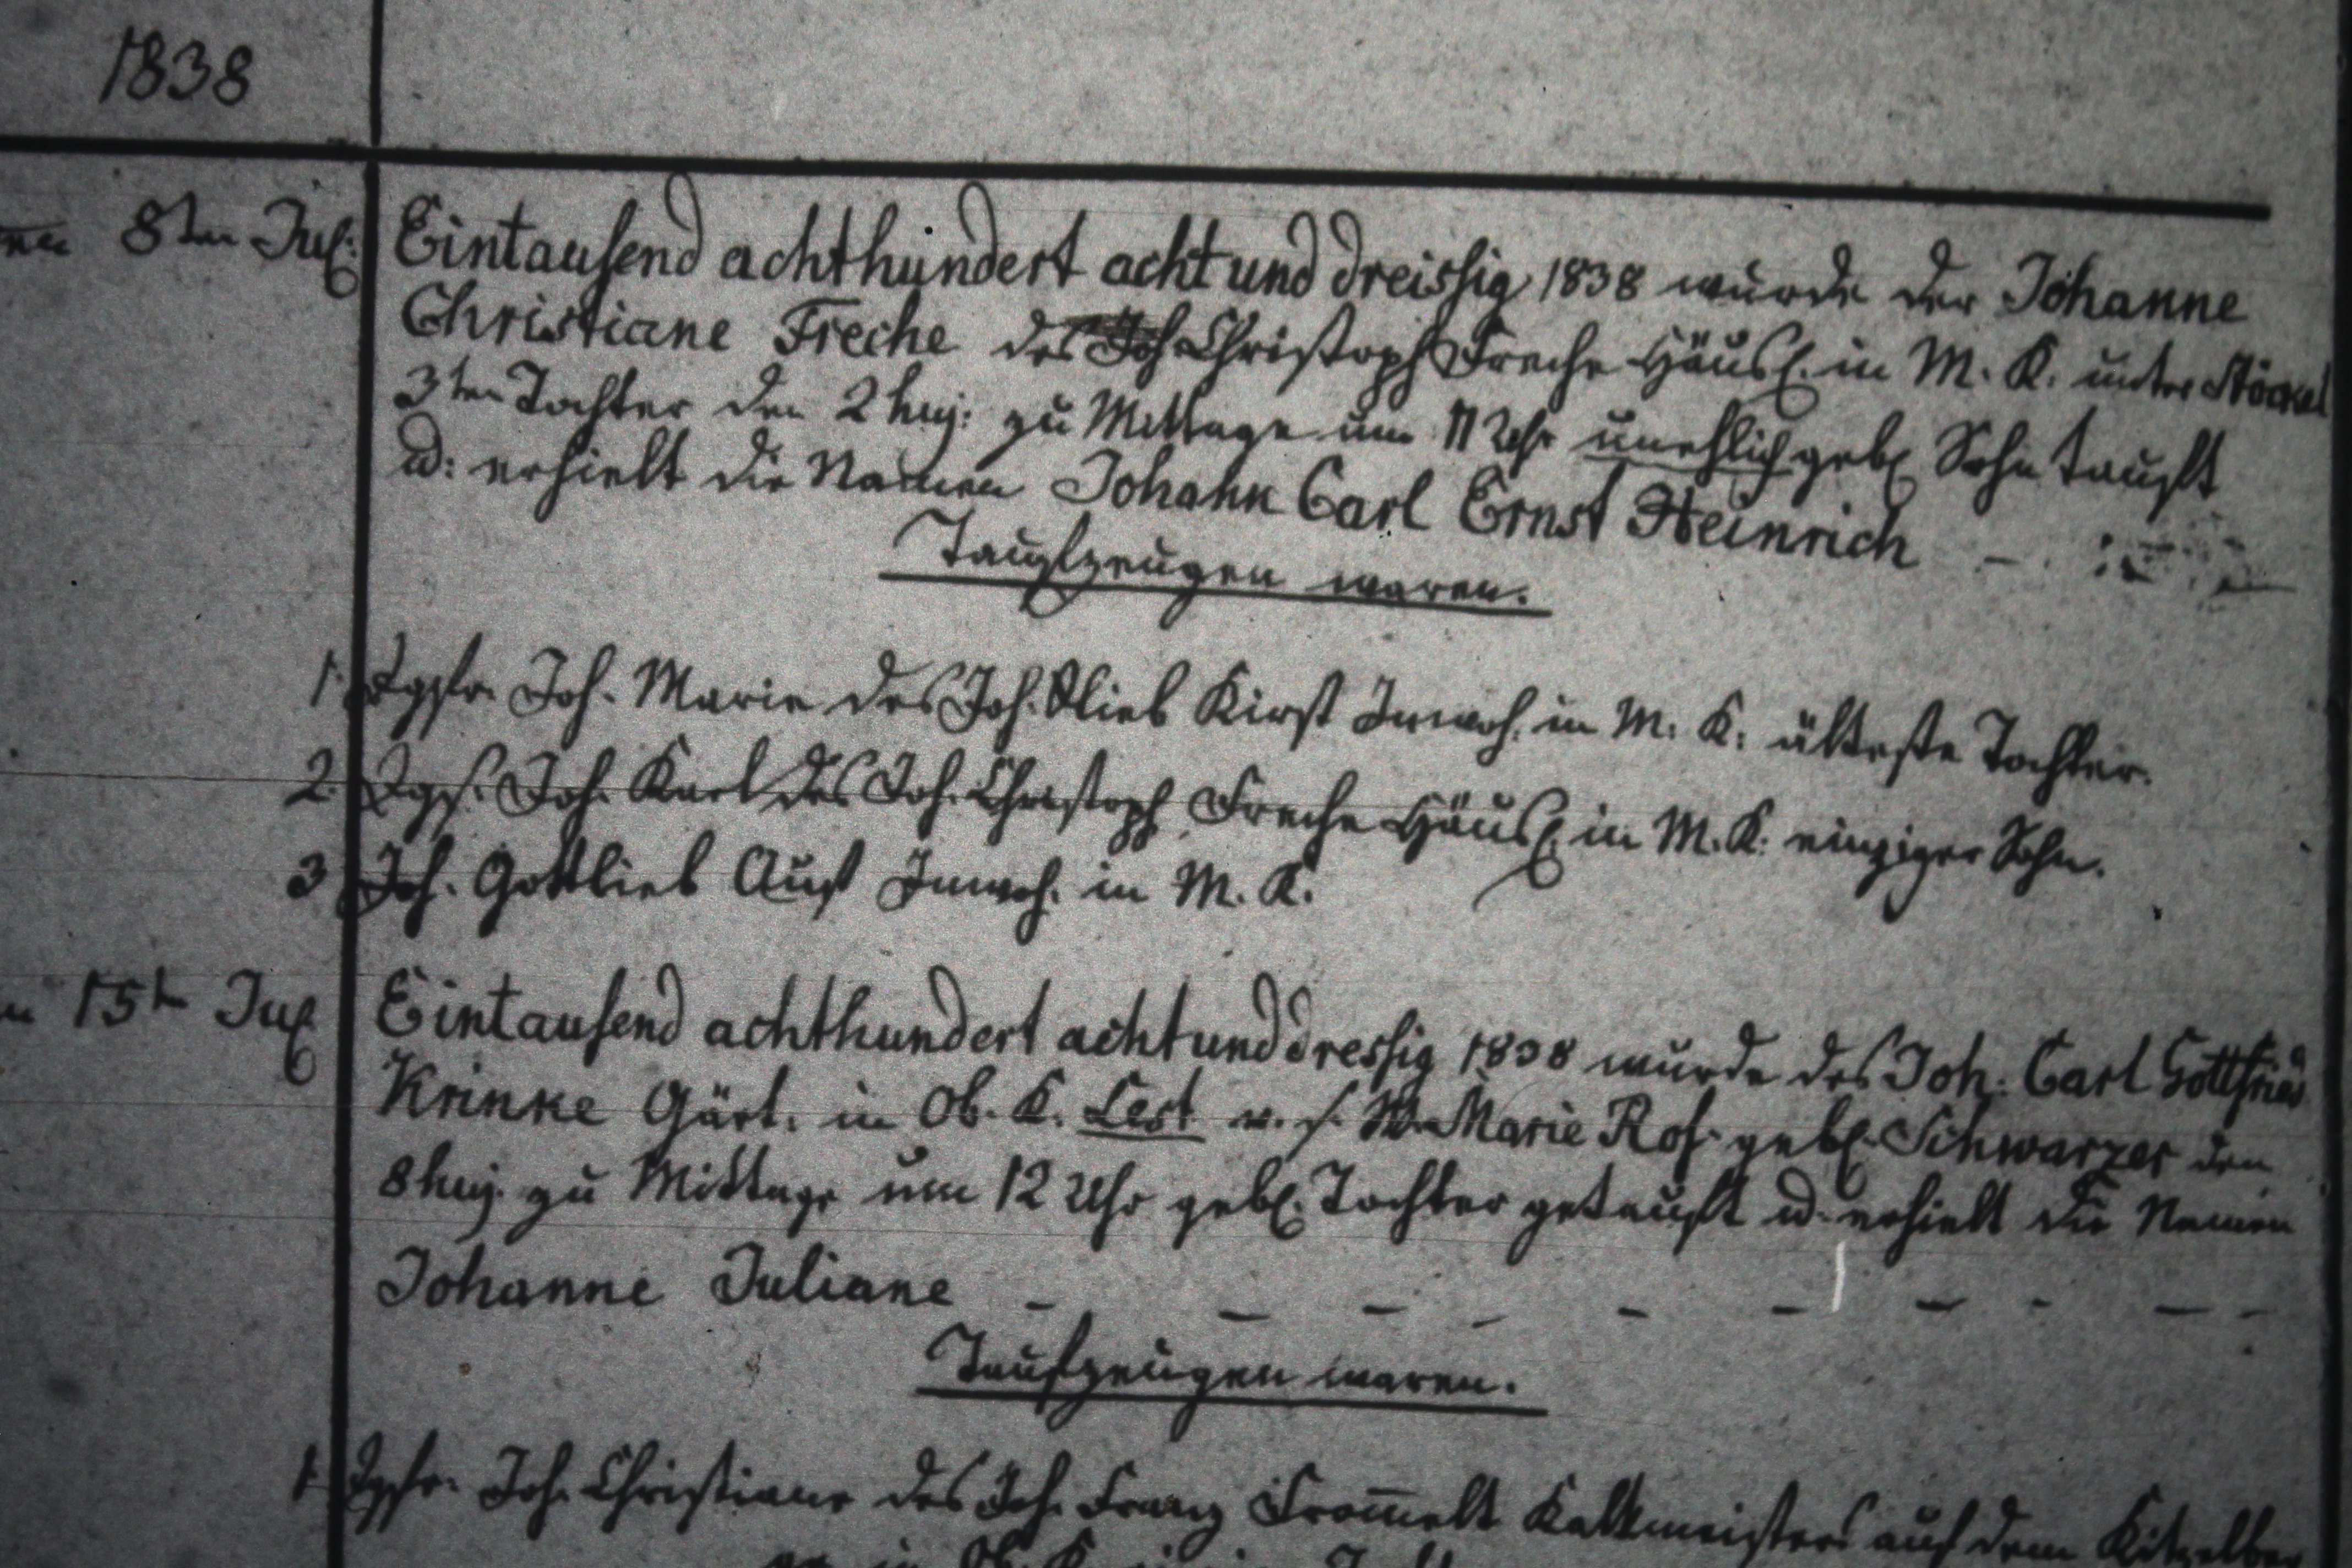 1838
8ten Jul.
Eintausend achthundert acht und dreissig 1838 wurde der Johanne
Christiane Freche des Joh Christoph Freche Häusl. in M. K. unter Stöckel
3ten Tochter den 2 huj: zu Mittage um 11 Uhr unehlich gebl. Sohn tauft
u: erhielt die Namen Johann Carl Ernst Heinrich
Taufzeugen waren.
1. Jgfr. Joh. Marie des Joh. Glieb Kirst Inwoh. in M. K. älteste Tochter.
2. Jgs. Joh. Karl des Joh. Christoph Freche Häusl. in M. K. einziger Sohn.
3 Joh. Gottlieb Aust Inwoh. in M. K.
15tn Jul
Eintausend achthundert acht und dressig 1838 wurde des Joh. Carl Gottfried
Krinke Gärt. in Ob. K. Lest v. s. W. Marie Ros. gebl. Schwarzer den
8 huj. zu Mittage um 12 Uhr gebl. Tochter getauft u. erhielt die Namen
Johanne Juliane
Taufzeugen waren.
1. Jgfr. Joh. Christiane des Joh. Franz From̄elt Kalkmeisters auf dem